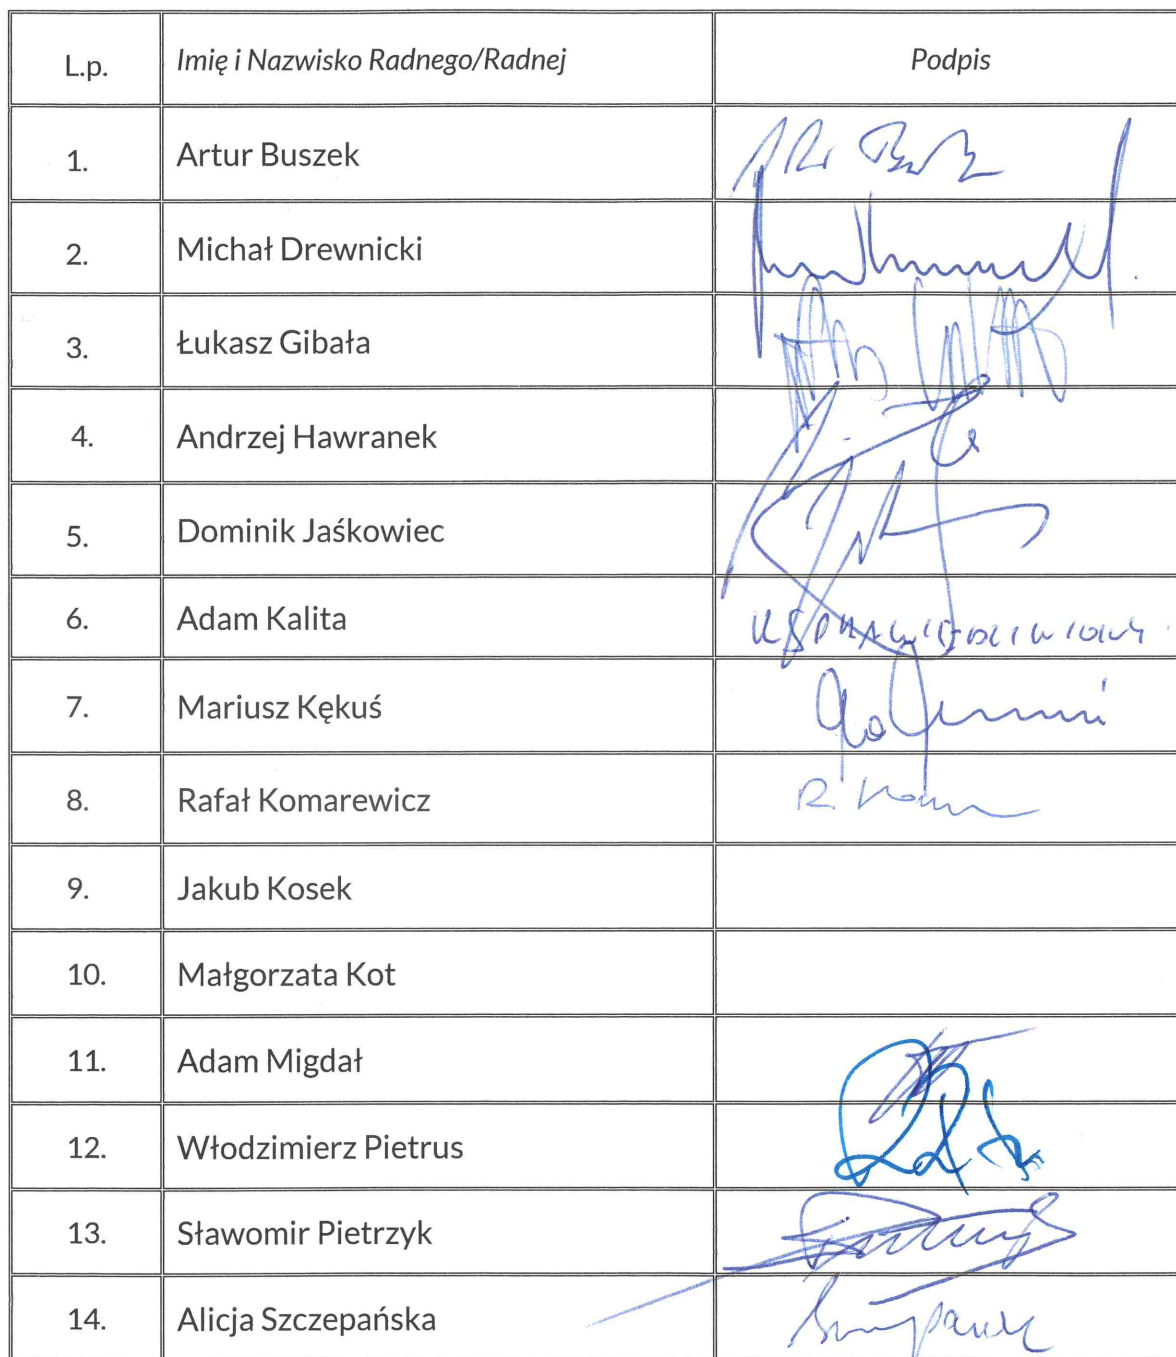 L.p. Imię i Nazwisko Radnego/Radnej Podpis
1. Artur Buszek
2. Michał Drewnicki
3. Łukasz Gibała
4. Andrzej Hawranek
5. Dominik Jaśkowiec
6. Adam Kalita
7. Mariusz Kękuś
8. Rafał Komarewicz
9. Jakub Kosek
10. Małgorzata Kot
11. Adam Migdał
12. Włodzimierz Pietrus
13. Sławomir Pietrzyk
14. Alicja Szczepańska